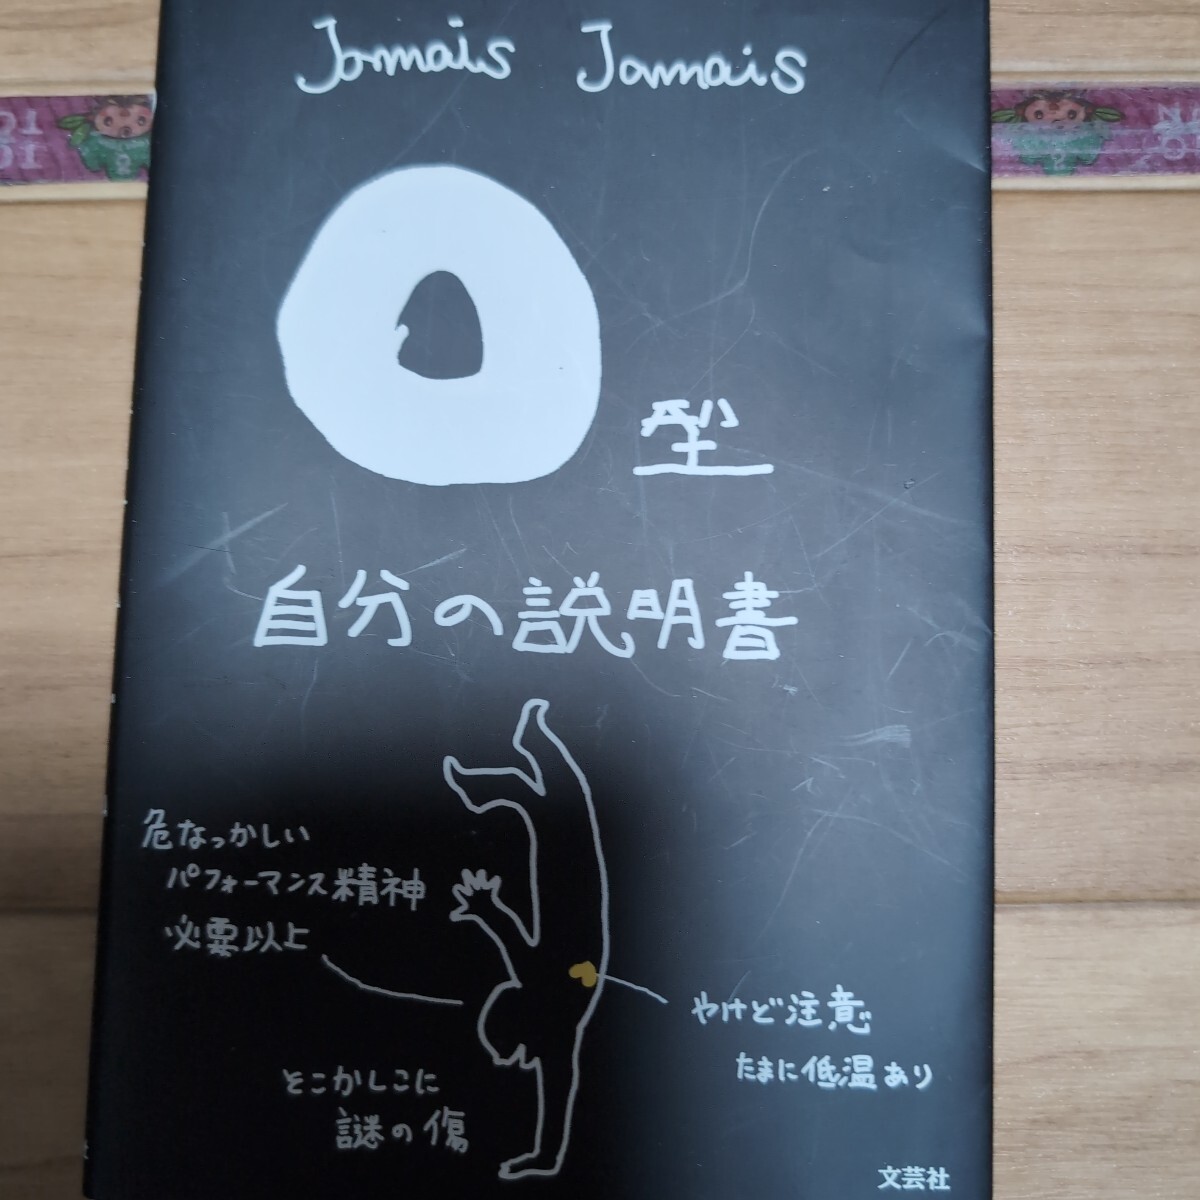 Jamais Jamais
O型
自分の説明書
危なっかしい
パフォーマンス精神
必要以上
やけど注意
たまに低温あり
そこかしこに
謎の傷
文芸社